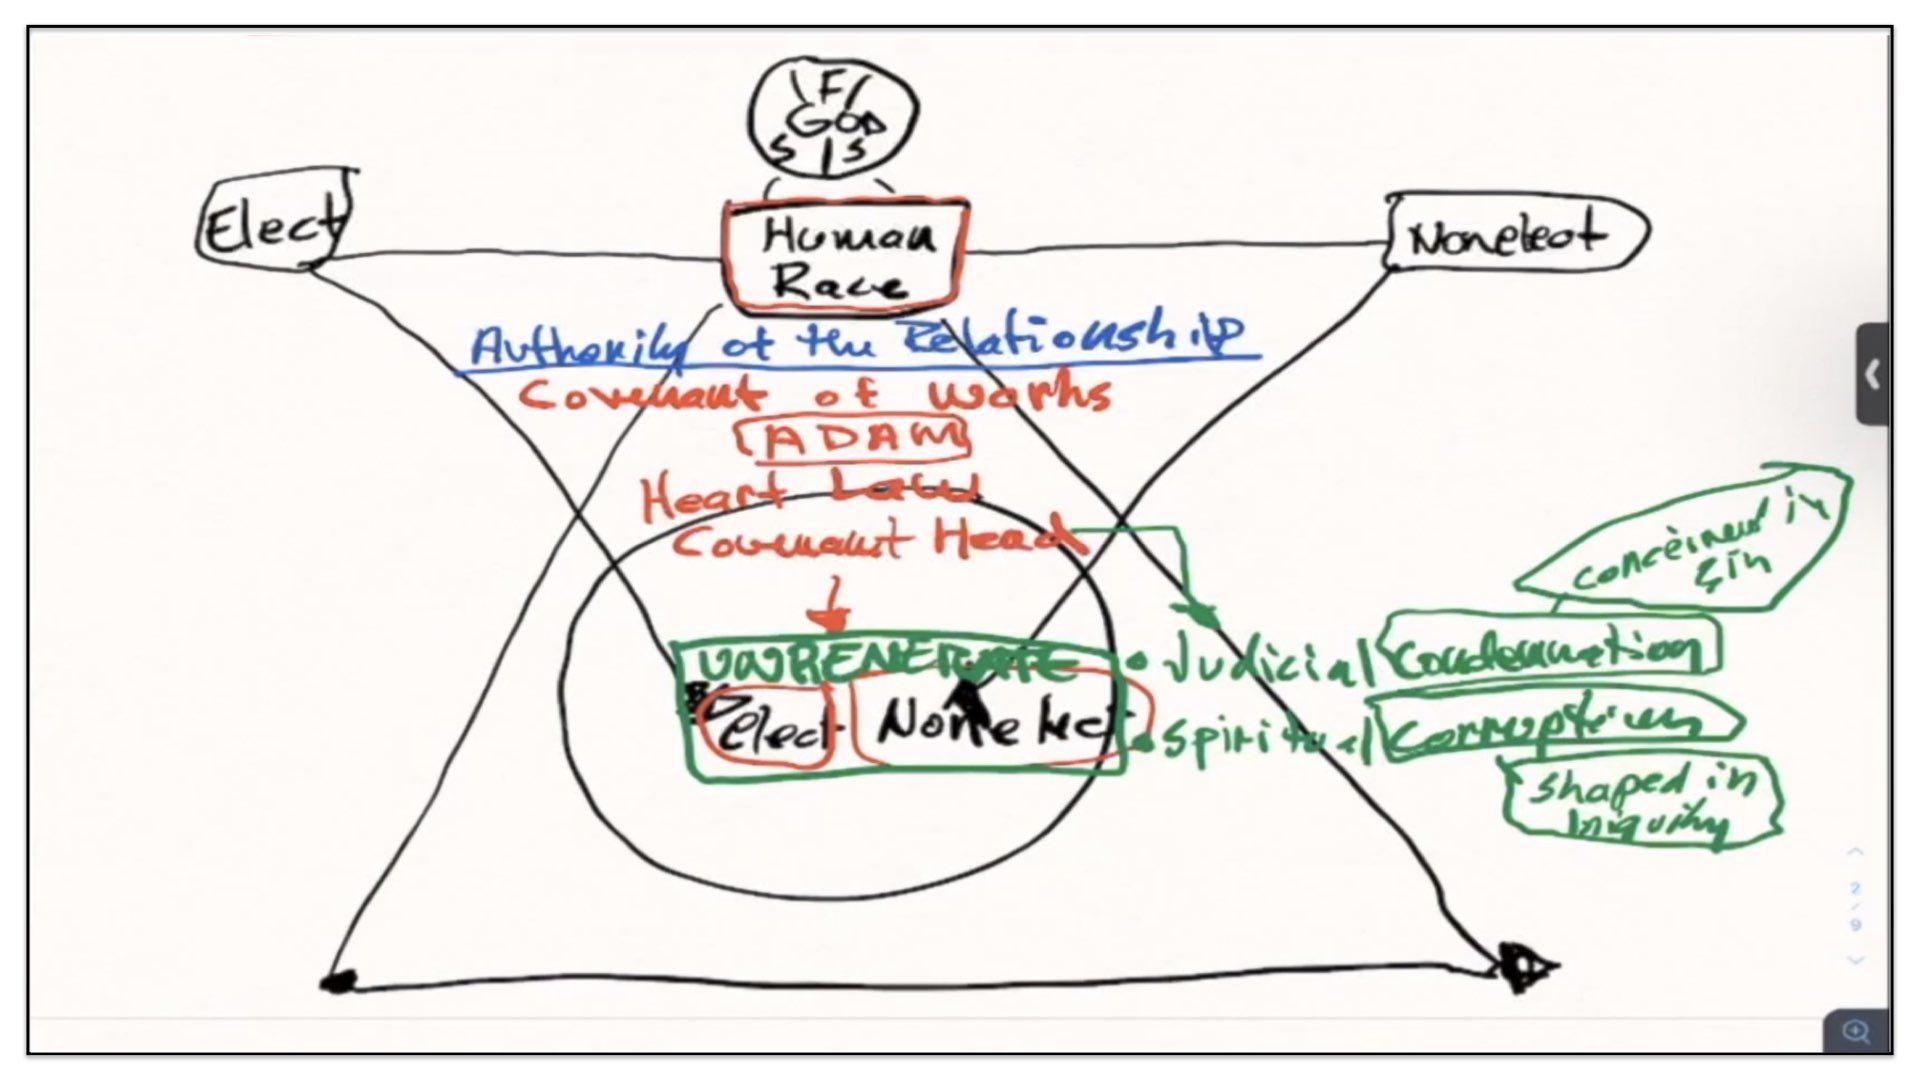 F
GOD
S S
Elect
Human
Race
Nonelect
Authority of the Relationship
Covenant of Works
ADAM
Heart Law
Covenant Head
conceived in
Sin
UNRENERATE
• Judicial Condemnation
Elect
Nonelect
• Spiritual Corruption
shaped in
Iniquity
2
/
9